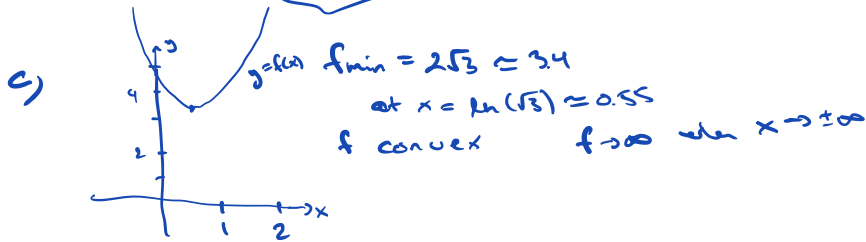 c)
y
4
2
1 2 x
y=f(x)
f_min = 2√3 ≃ 3.4
at x = ln(√3) ≃ 0.55
f convex f→∞ when x→±∞